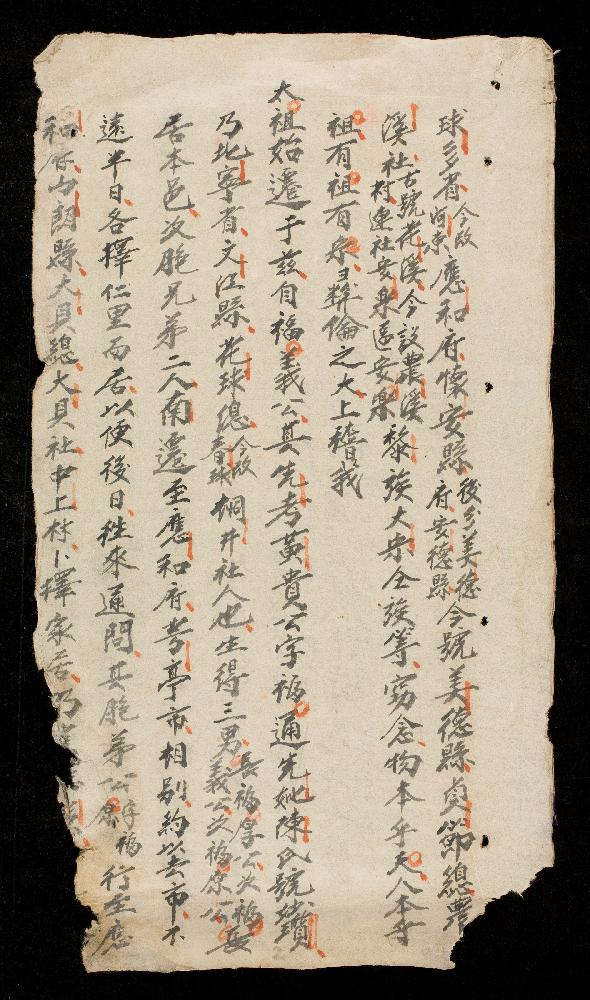 球多省今改河東應和府懷安縣後多美德府安德縣今號美德縣貞節總農
溪社古號花溪今設農溪村連社安泉區安泉黎族大宗仝族等竊念物本乎天人本乎
祖有祖有宗彝倫之大上稽我
太祖始遷于茲自福義公其先考黃貴公字福通先妣陳氏號
乃北寧省文江縣花球總今改春球桐井社人也生得三男長福厚公次福義公次福原公長
居本邑次胞兄弟二人南遷至應和府芳亭市相別約以去市不
遠半日各擇仁里而居以便後日徃來通問其胞弟公字福原行至應
和府山朗縣大貝總大貝社中上村卜擇家居乃